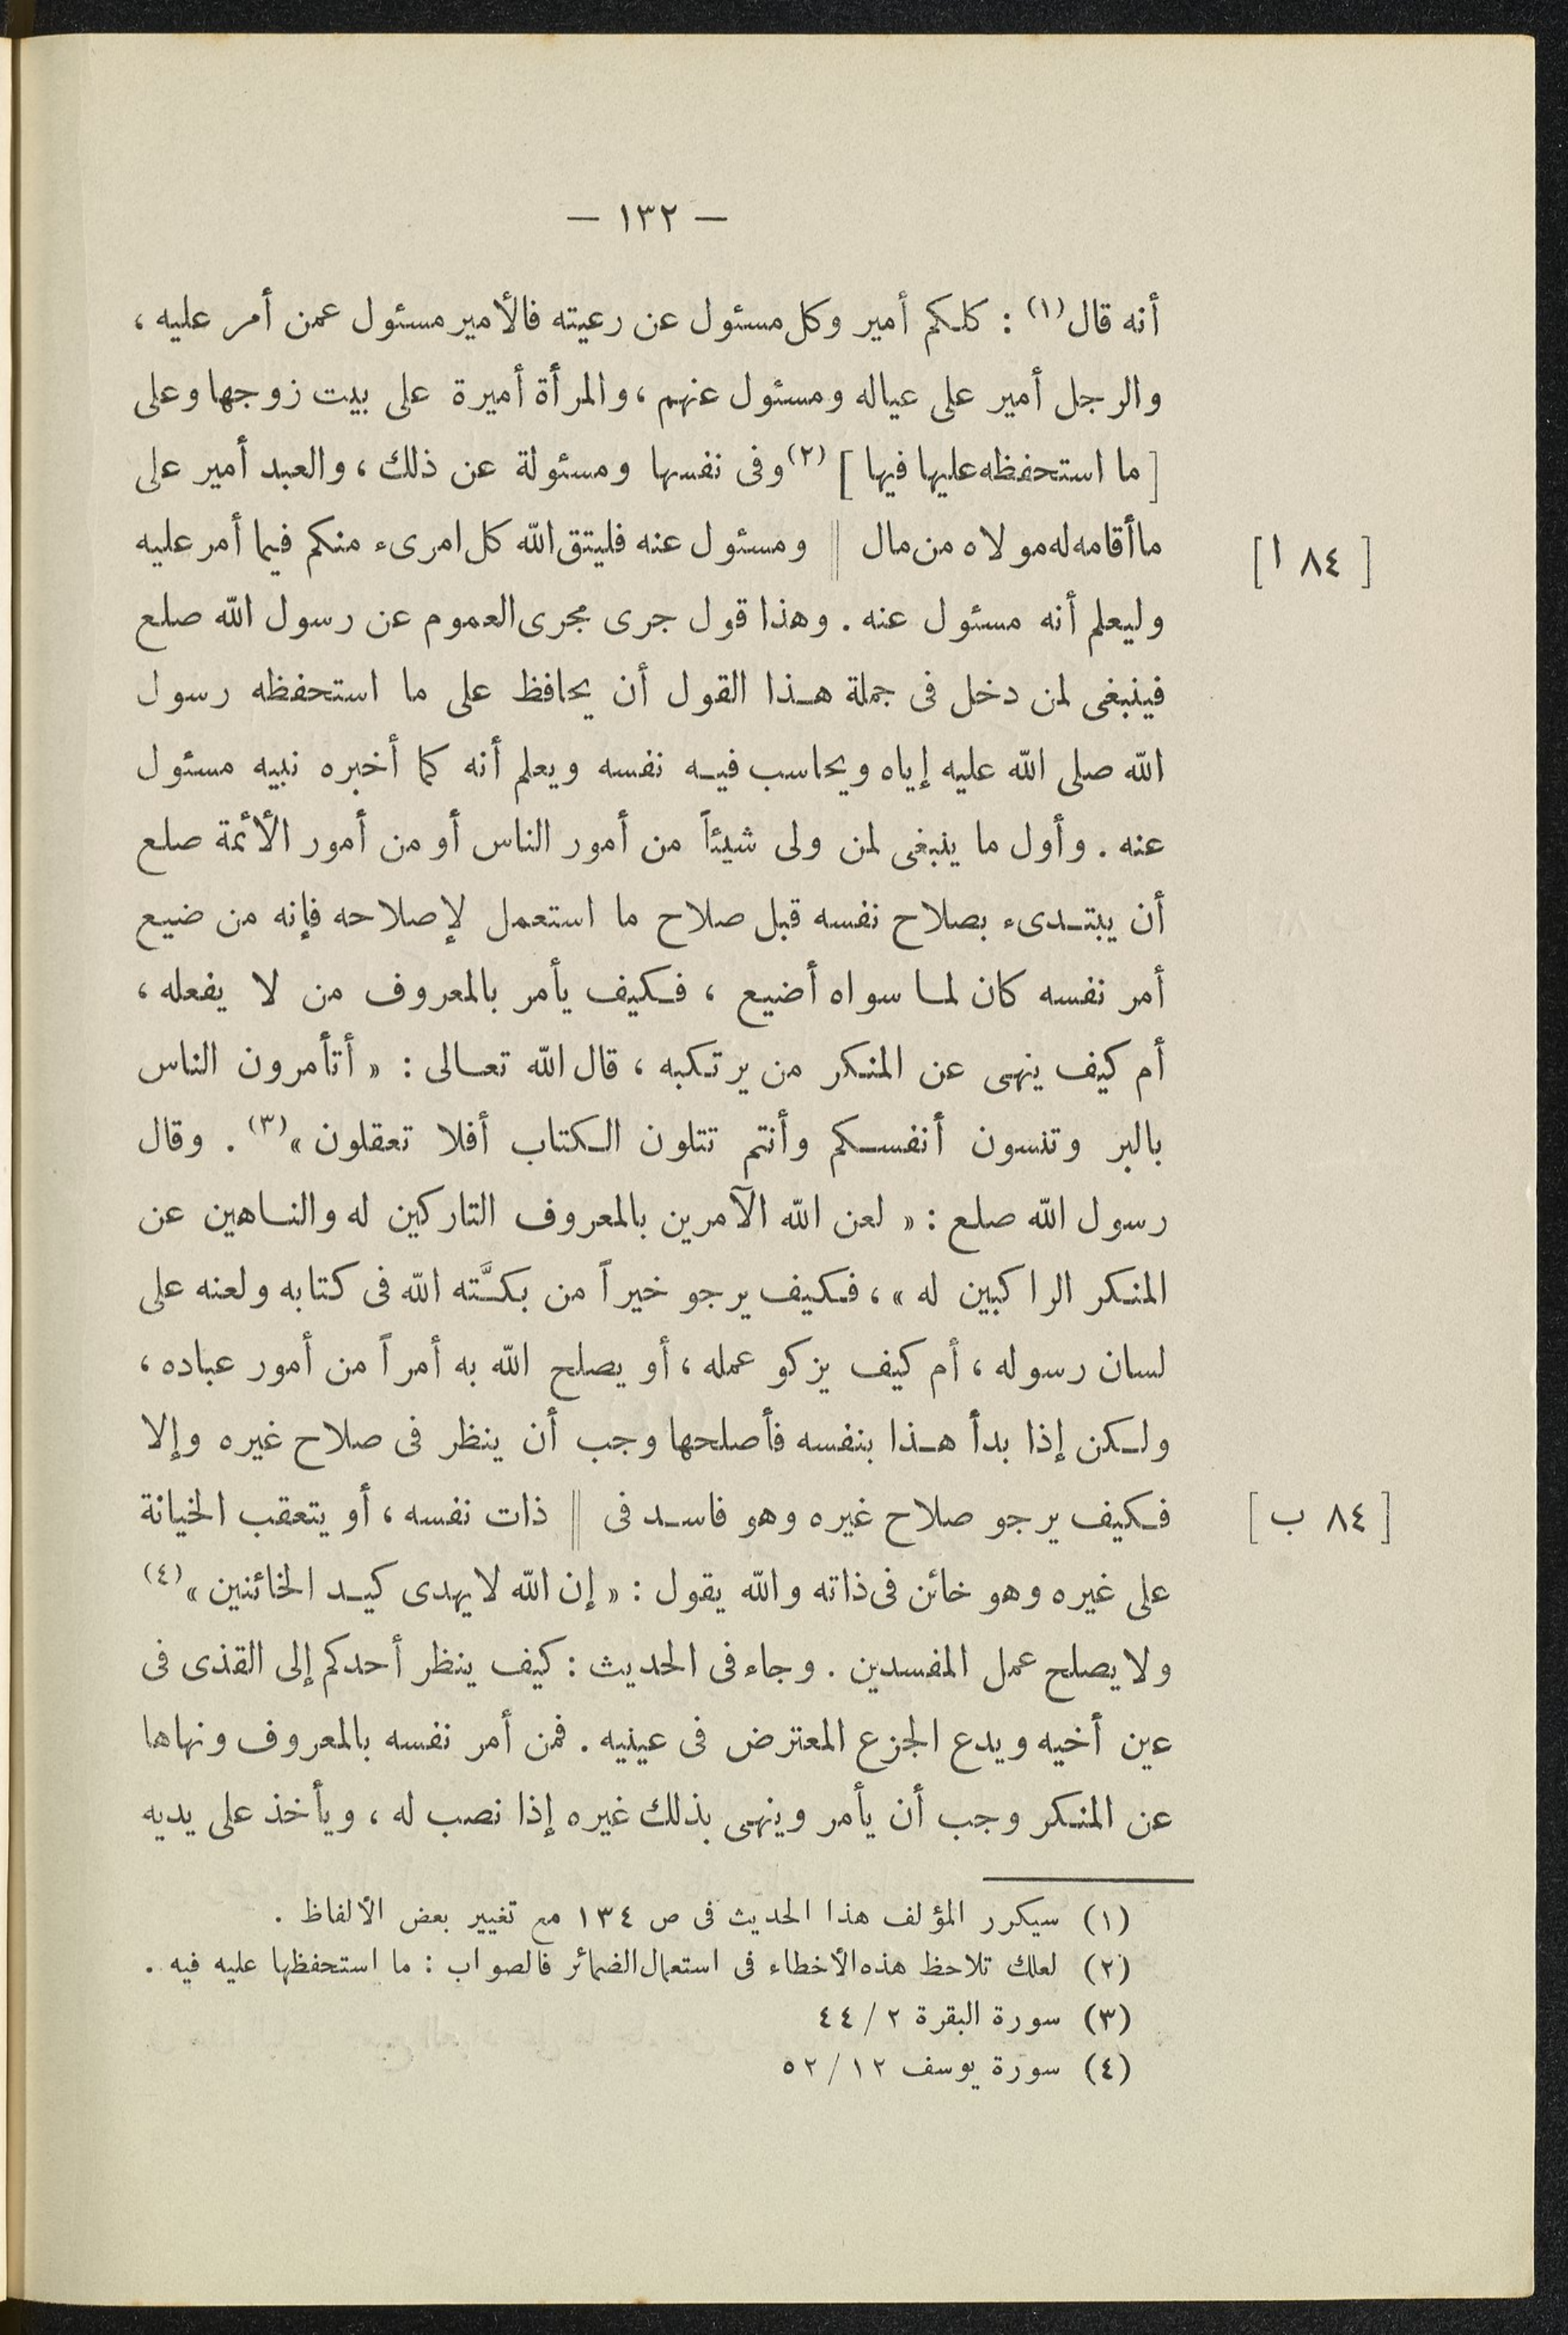 — ١٣٢ —
أنه قال(١) : كلكم أمير وكل مسئول عن رعيته فالأمير مسئول عمن أمر عليه ،
والرجل أمير على عياله ومسئول عنهم ، والمرأة أميرة على بيت زوجها وعلى
[ ما استحفظه عليها فيها ] (٢) وفى نفسها ومسئولة عن ذلك ، والعبد أمير على
ما أقامه له مولاه من مال || ومسئول عنه فليتق الله كل امرىء منكم فيما أمر عليه
[ ٨٤ ا ]
وليعلم أنه مسئول عنه . وهذا قول جرى مجرى العموم عن رسول الله صلع
فينبغى لمن دخل فى جملة هذا القول أن يحافظ على ما استحفظه رسول
الله صلى الله عليه إياه ويحاسب فيه نفسه ويعلم أنه كما أخبره نبيه مسئول
عنه . وأول ما ينبغى لمن ولى شيئاً من أمور الناس أو من أمور الأئمة صلع
أن يبتدىء بصلاح نفسه قبل صلاح ما استعمل لإصلاحه فإنه من ضيع
أمر نفسه كان لما سواه أضيع ، فكيف يأمر بالمعروف من لا يفعله ،
أم كيف ينهى عن المنكر من يرتكبه ، قال الله تعالى : « أتأمرون الناس
بالبر وتنسون أنفسكم وأنتم تتلون الكتاب أفلا تعقلون »(٣) . وقال
رسول الله صلع : « لعن الله الآمرين بالمعروف التاركين له والناهين عن
المنكر الراكبين له » ، فكيف يرجو خيراً من بكَّته الله فى كتابه ولعنه على
لسان رسوله ، أم كيف يزكو عمله ، أو يصلح الله به أمراً من أمور عباده ،
ولكن إذا بدأ هذا بنفسه فأصلحها وجب أن ينظر فى صلاح غيره وإلا
فكيف يرجو صلاح غيره وهو فاسد فى || ذات نفسه ، أو يتعقب الخيانة
[ ٨٤ ب ]
على غيره وهو خائن فى ذاته والله يقول : « إن الله لا يهدى كيد الخائنين »(٤)
ولا يصلح عمل المفسدين . وجاء فى الحديث : كيف ينظر أحدكم إلى القذى فى
عين أخيه ويدع الجزع المعترض فى عينيه . فمن أمر نفسه بالمعروف ونهاها
عن المنكر وجب أن يأمر وينهى بذلك غيره إذا نصب له ، ويأخذ على يديه
(١) سيكرر المؤلف هذا الحديث فى ص ١٣٤ مع تغيير بعض الألفاظ .
(٢) لعلك تلاحظ هذه الأخطاء فى استعمال الضمائر فالصواب : ما استحفظها عليه فيه .
(٣) سورة البقرة ٢ / ٤٤
(٤) سورة يوسف ١٢ / ٥٢